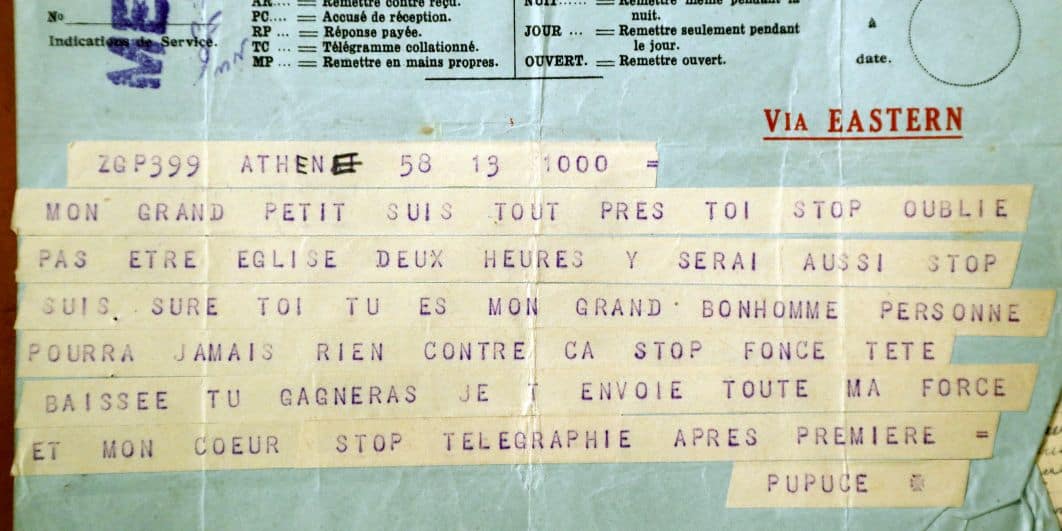 AR.... = Remettre contre reçu.
PC.... = Accusé de réception.
RP ... = Réponse payée.
TC ... = Télégramme collationné.
MP ... = Remettre en mains propres.
No
Indications de Service.
ME
NUIT...... = Remettre même pendant la
nuit.
JOUR ... = Remettre seulement pendant
le jour.
OUVERT. = Remettre ouvert.
à
date.
VIA EASTERN
ZGP399 ATHEN 58 13 1000 =
MON GRAND PETIT SUIS TOUT PRES TOI STOP OUBLIE
PAS ETRE EGLISE DEUX HEURES Y SERAI AUSSI STOP
SUIS. SURE TOI TU ES MON GRAND BONHOMME PERSONNE
POURRA JAMAIS RIEN CONTRE CA STOP FONCE TETE
BAISSEE TU GAGNERAS JE T ENVOIE TOUTE MA FORCE
ET MON COEUR STOP TELEGRAPHIE APRES PREMIERE =
PUPUCE